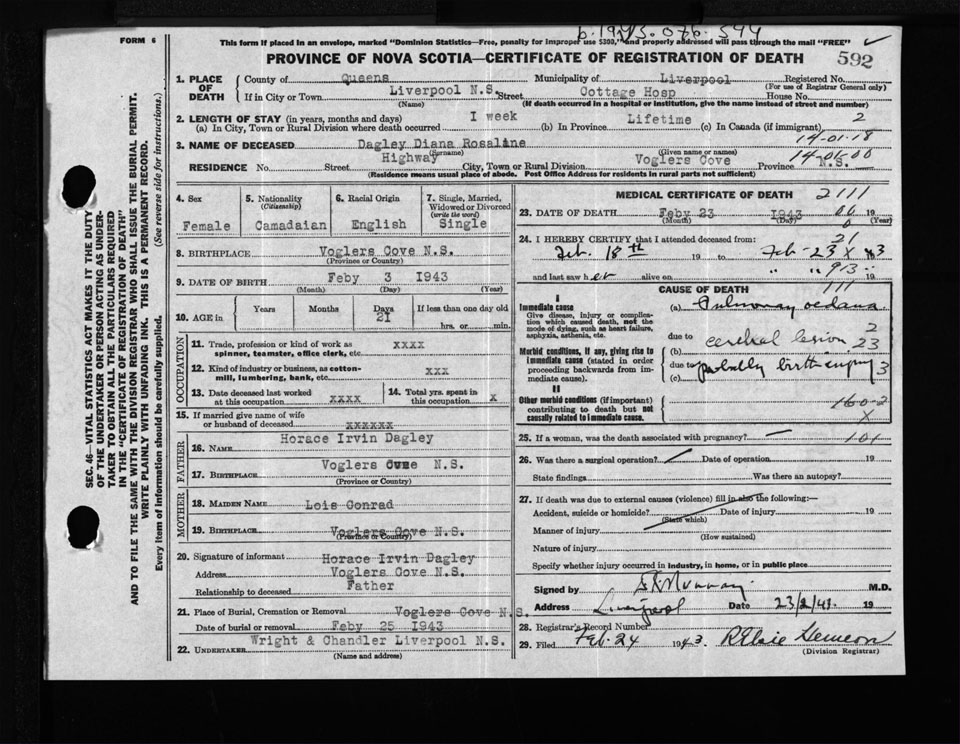 b. 1943. 076. 544
FORM 6
This form if placed in an envelope, marked "Dominion Statistics—Free, penalty for improper use $300," and properly addressed will pass through the mail "FREE"
PROVINCE OF NOVA SCOTIA—CERTIFICATE OF REGISTRATION OF DEATH
592
1. PLACE OF DEATH
County of Queens Municipality of Liverpool Registered No.
(For use of Registrar General only)
If in City or Town Liverpool N.S. Street Cottage Hosp House No.
(Name) (If death occurred in a hospital or institution, give the name instead of street and number)
2. LENGTH OF STAY (in years, months and days)
(a) In City, Town or Rural Division where death occurred I week (b) In Province Lifetime (c) In Canada (if immigrant) 2
14-01-18
3. NAME OF DECEASED Dagley Diana Rosaline
(Surname) (Given name or names)
14-06-00
RESIDENCE No. Highway Street City, Town or Rural Division Voglers Cove Province N.S.
(Residence means usual place of abode. Post Office Address for residents in rural parts not sufficient)
4. Sex Female
5. Nationality (Citizenship) Camadaian
6. Racial Origin English
7. Single, Married, Widowed or Divorced (write the word) Single
8. BIRTHPLACE Voglers Cove N.S.
(Province or Country)
9. DATE OF BIRTH Feby 3 1943
(Month) (Day) (Year)
10. AGE in Years Months Days 21 If less than one day old hrs. or min.
OCCUPATION
11. Trade, profession or kind of work as spinner, teamster, office clerk, etc. XXXX
12. Kind of industry or business, as cotton-mill, lumbering, bank, etc. XXX
13. Date deceased last worked at this occupation XXXX
14. Total yrs. spent in this occupation X
15. If married give name of wife or husband of deceased XXXXXX
FATHER
16. NAME Horace Irvin Dagley
17. BIRTHPLACE Voglers Cove N.S.
(Province or Country)
MOTHER
18. MAIDEN NAME Lois Conrad
19. BIRTHPLACE Voglers Cove N.S.
(Province or Country)
20. Signature of informant Horace Irvin Dagley
Address Voglers Cove N.S.
Relationship to deceased Father
21. Place of Burial, Cremation or Removal Voglers Cove N.S.
Date of burial or removal Feby 25 1943
22. UNDERTAKER Wright & Chandler Liverpool N.S.
(Name and address)
MEDICAL CERTIFICATE OF DEATH 2111
23. DATE OF DEATH Feby 23 1943 19
(Month) (Day) (Year)
24. I HEREBY CERTIFY that I attended deceased from: 21
Feb. 18th 19 to Feb - 23 X 43
and last saw her alive on " " 913 " 19
CAUSE OF DEATH 111
I
Immediate cause
Give disease, injury or complication which caused death, not the mode of dying, such as heart failure, asphyxia, asthenia, etc.
(a) Pulmonary oedama
due to
Morbid conditions, if any, giving rise to immediate cause (stated in order proceeding backwards from immediate cause).
(b) cerebral lesion 2 23
due to
(c) probably birth injury 3
II
Other morbid conditions (if important) contributing to death but not causally related to immediate cause.
160-2
X
25. If a woman, was the death associated with pregnancy? — 101
26. Was there a surgical operation? Date of operation 19
State findings Was there an autopsy?
27. If death was due to external causes (violence) fill in also the following:—
Accident, suicide or homicide? Date of injury 19
(State which)
Manner of injury
(How sustained)
Nature of injury
Specify whether injury occurred in industry, in home, or in public place
Signed by Murray M.D.
Address Liverpool Date 23/2/43. 19
28. Registrar's Record Number
29. Filed Feb. 24 1943 R Elsie
(Division Registrar)
SEC. 46—VITAL STATISTICS ACT MAKES IT THE DUTY
OF THE UNDERTAKER OR PERSON ACTING AS UNDERTAKER TO OBTAIN ALL THE PARTICULARS REQUIRED
IN THE "CERTIFICATE OF REGISTRATION OF DEATH"
AND TO FILE THE SAME WITH THE DIVISION REGISTRAR WHO SHALL ISSUE THE BURIAL PERMIT.
WRITE PLAINLY WITH UNFADING INK. THIS IS A PERMANENT RECORD.
Every item of information should be carefully supplied. (See reverse side for instructions.)